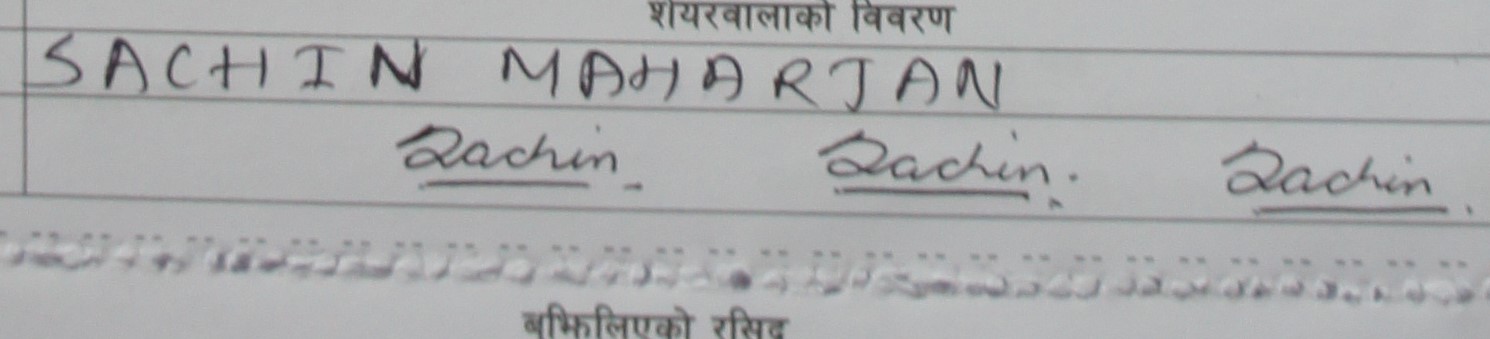 शेयरवालाको विवरण
SACHIN MAHARJAN
Sachin. Sachin. Sachin.
बुझिलिएको रसिद